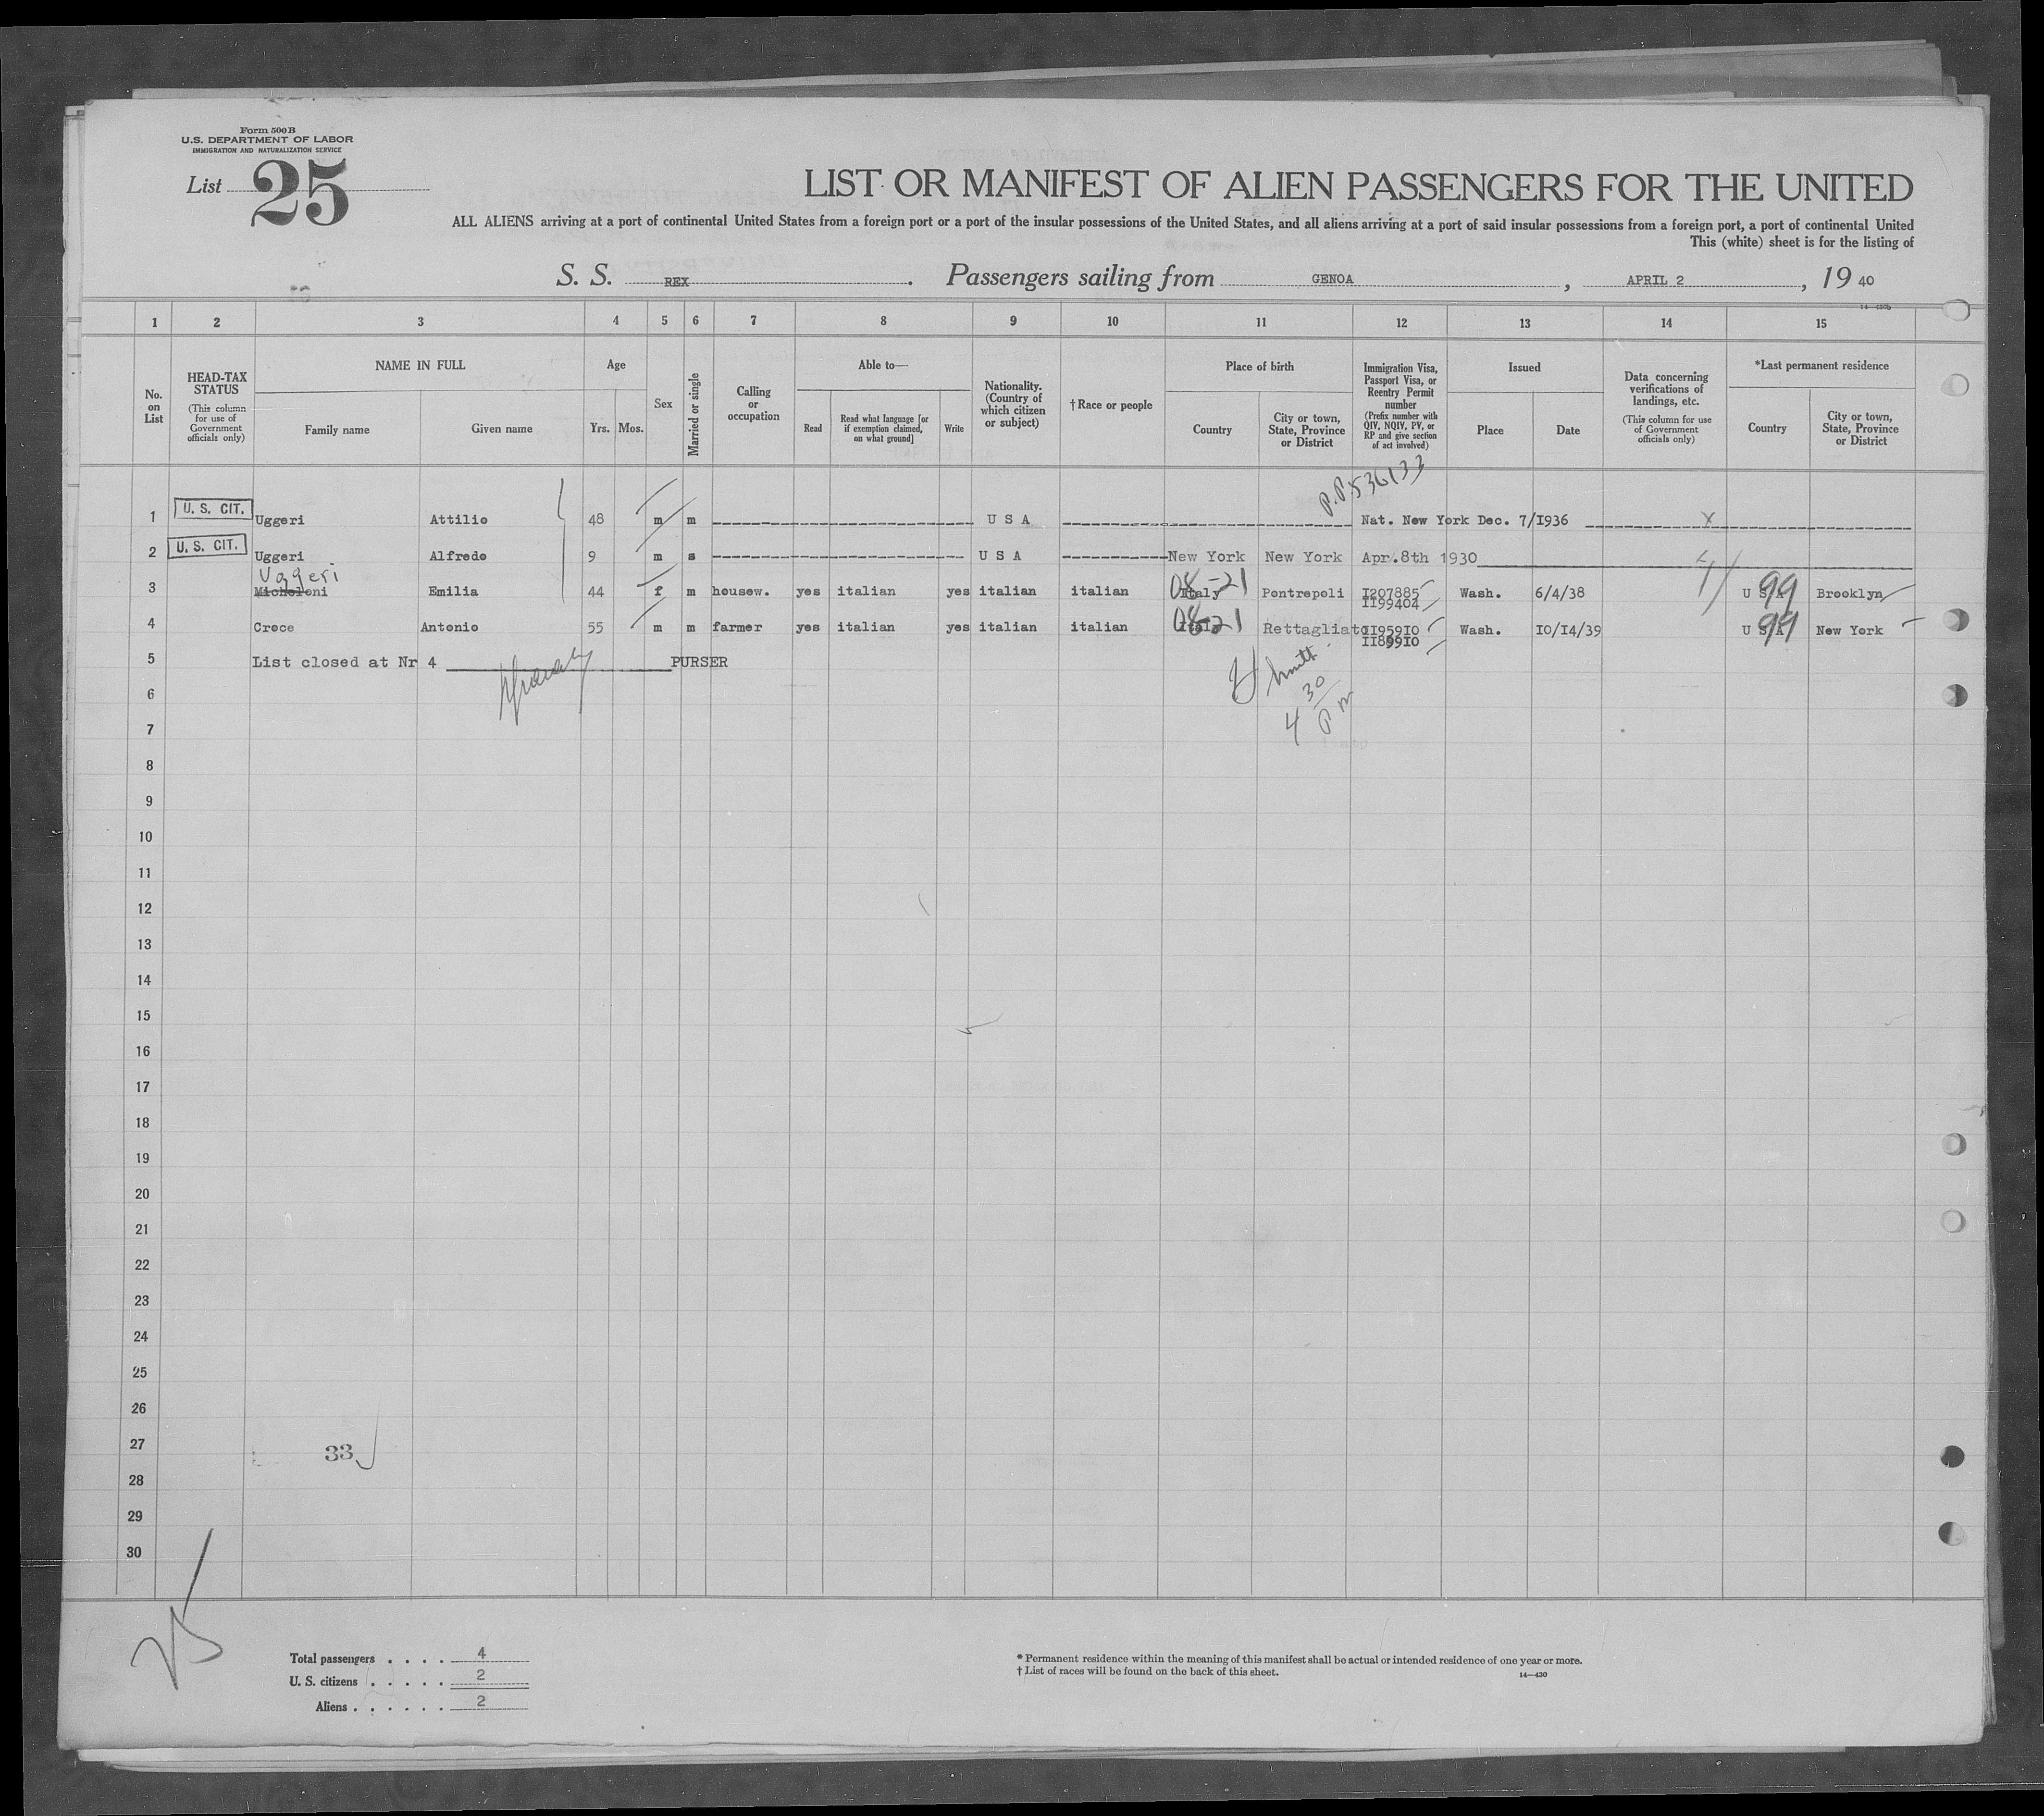 Form 500B
U.S. DEPARTMENT OF LABOR
IMMIGRATION AND NATURALIZATION SERVICE
List 25
LIST OR MANIFEST OF ALIEN PASSENGERS FOR THE UNITED
ALL ALIENS arriving at a port of continental United States from a foreign port or a port of the insular possessions of the United States, and all aliens arriving at a port of said insular possessions from a foreign port, a port of continental United
This (white) sheet is for the listing of
S. S. REX. Passengers sailing from GENOA, APRIL 2, 19 40
1 2 3 4 5 6 7 8 9 10 11 12 13 14 15
No. on List
HEAD-TAX STATUS (This column for use of Government officials only)
NAME IN FULL
Family name Given name
Age
Yrs. Mos.
Sex
Married or single
Calling or occupation
Able to—
Read Read what language [or if exemption claimed, on what ground] Write
Nationality. (Country of which citizen or subject)
†Race or people
Place of birth
Country City or town, State, Province or District
Immigration Visa, Passport Visa, or Reentry Permit number (Prefix number with QIV, NQIV, PV, or RP and give section of act involved)
Issued
Place Date
Data concerning verifications of landings, etc. (This column for use of Government officials only)
*Last permanent residence
Country City or town, State, Province or District
P.P. 536133
1 U. S. CIT. Uggeri Attilio 48 m m U S A Nat. New York Dec. 7/1936 X
2 U. S. CIT. Uggeri Alfredo 9 m s U S A New York New York Apr.8th 1930
Uggeri
3 Micheloni Emilia 44 f m housew. yes italian yes italian italian Italy 08-21 Pontrepoli I207885 Wash. 6/4/38 U S A 99 Brooklyn
II99404
4 Croce Antonio 55 m m farmer yes italian yes italian italian Italy 08-21 Rettagliato II95910 Wash. IO/I4/39 U S A 99 New York
II89910
5 List closed at Nr 4 PURSER
4 30 P m
6
7
8
9
10
11
12
13
14
15
16
17
18
19
20
21
22
23
24
25
26
27 33
28
29
30
25
Total passengers . . . . 4
U. S. citizens . . . . . 2
Aliens . . . . . . 2
* Permanent residence within the meaning of this manifest shall be actual or intended residence of one year or more.
† List of races will be found on the back of this sheet. 14—430